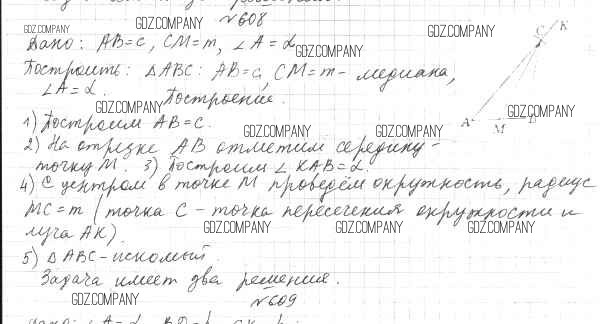 №608
Дано: AB=c, CM=m, ∠A=α
Построить: ΔABC: AB=c, CM=m - медиана,
∠A=α. Построение.
1) Построим AB=c.
2) На отрезке AB отметим середину -
точку M. 3) Построим ∠KAB=α.
4) С центром в точке M проведём окружность, радиус
MC=m (точка C - точка пересечения окружности и
луча AK).
5) ΔABC - искомый.
Задача имеет два решения.
№609
GDZ.COMPANY
GDZ.COMPANY
GDZ.COMPANY
GDZ.COMPANY
GDZ.COMPANY
GDZ.COMPANY
GDZ.COMPANY
GDZ.COMPANY
GDZ.COMPANY
GDZ.COMPANY
GDZ.COMPANY
GDZ.COMPANY
C K
A M